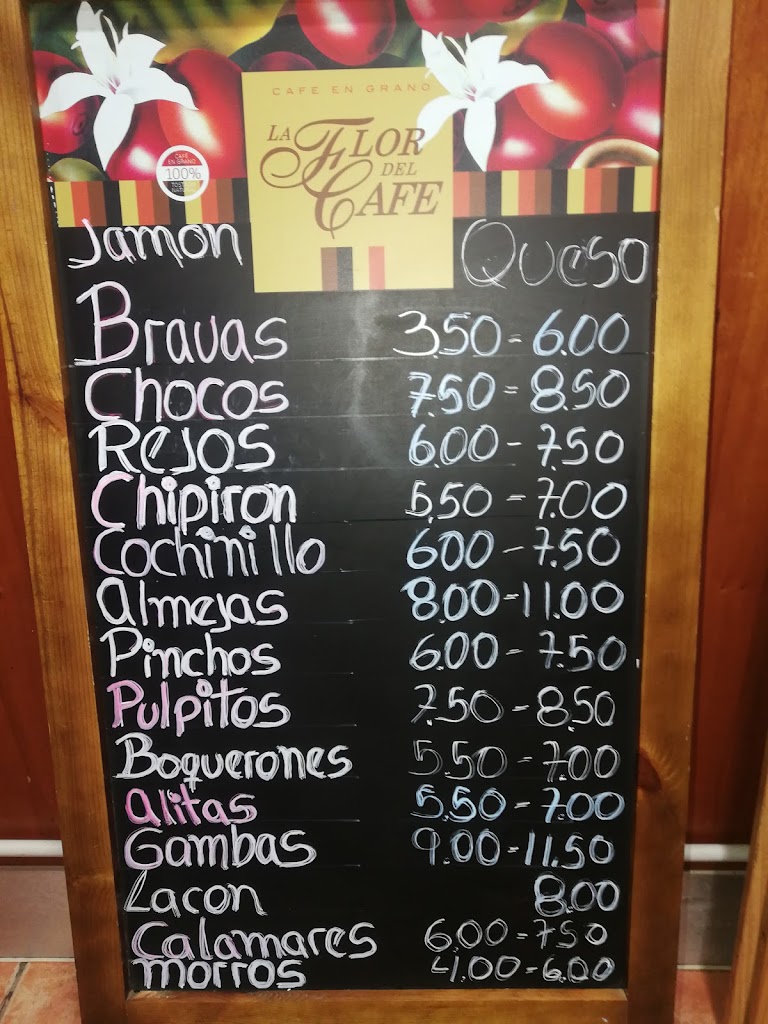 CAFE EN GRANO
LA FLOR
DEL
CAFE
CAFÉ
EN GRANO
100%
Jamon Queso
Bravas 3.50 - 6.00
Chocos 7.50 = 8.50
Rejos 6.00 - 7.50
Chipiron 5.50 - 7.00
Cochinillo 600 - 7.50
Almejas 8.00 - 11.00
Pinchos 6.00 - 7.50
Pulpitos 7.50 - 8.50
Boquerones 5.50 - 7.00
alitas 5.50 - 7.00
Gambas 9.00 - 11.50
Lacon 8.00
Calamares 6.00 = 7.50
morros 4.00 = 6.00